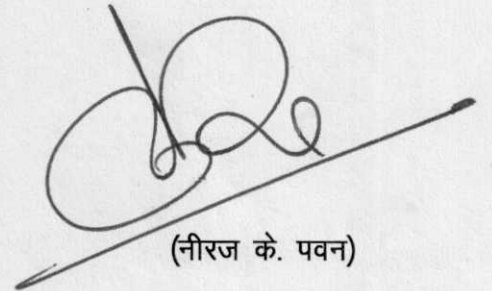 (नीरज के. पवन)